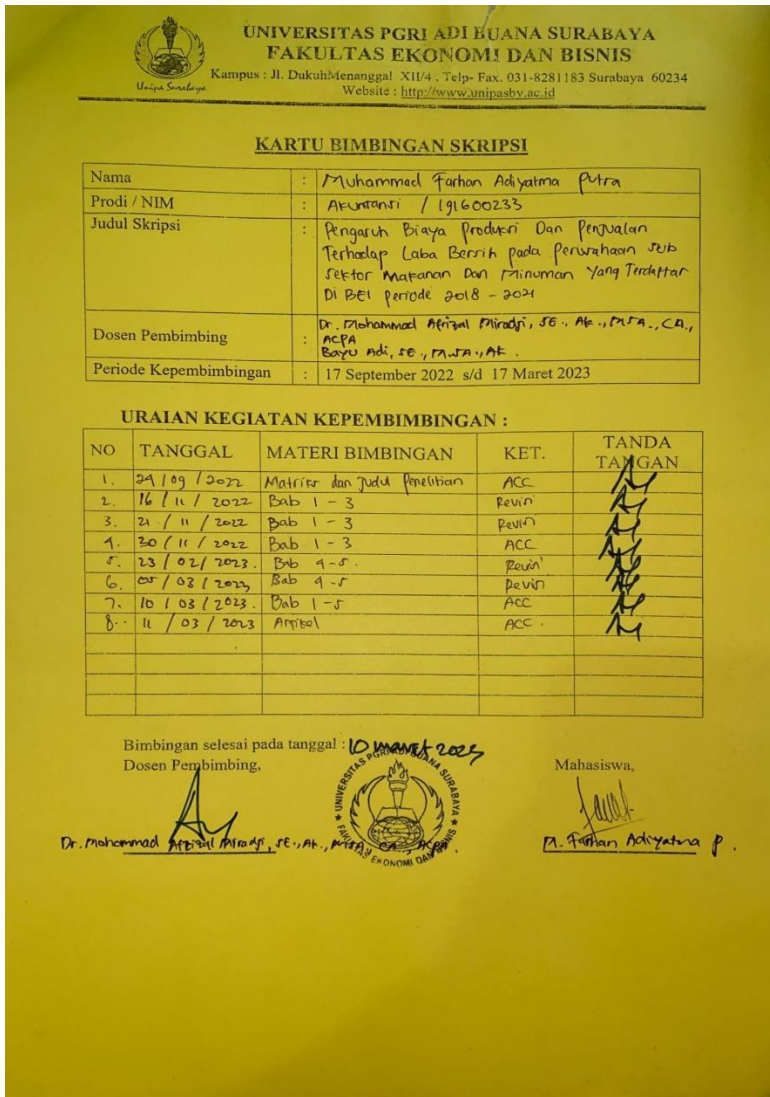 UNIVERSITAS PGRI ADI BUANA SURABAYA
FAKULTAS EKONOMI DAN BISNIS
Kampus : Jl. DukuhMenanggal XII/4 , Telp- Fax. 031-8281183 Surabaya 60234
Website : http://www.unipasby.ac.id
Unipa Surabaya
KARTU BIMBINGAN SKRIPSI
Nama : Muhammad Farhan Adiyatma Putra
Prodi / NIM : Akuntansi / 191600233
Judul Skripsi : Pengaruh Biaya Produksi Dan Penjualan
Terhadap Laba Bersih pada Perusahaan Sub
Sektor Makanan Dan Minuman Yang Terdaftar
Di BEI periode 2018 - 2021
Dosen Pembimbing : Dr. Mohammad Afrizal Miradji, SE., Ak., MSA., CA.,
ACPA
Bayu Adi, SE., M.SA., Ak.
Periode Kepembimbingan : 17 September 2022 s/d 17 Maret 2023
URAIAN KEGIATAN KEPEMBIMBINGAN :
NO TANGGAL MATERI BIMBINGAN KET. TANDA TANGAN
1. 29/09/2022 Matriks dan Judul Penelitian ACC
2. 16/11/2022 Bab 1 - 3 Revisi
3. 21/11/2022 Bab 1 - 3 Revisi
4. 30/11/2022 Bab 1 - 3 ACC
5. 23/02/2023. Bab 4-5. Revisi
6. 05/03/2023 Bab 4-5 Revisi
7. 10/03/2023. Bab 1-5 ACC
8. 11/03/2023 Artikel ACC.
Bimbingan selesai pada tanggal : 10 maret 2023
Dosen Pembimbing, Mahasiswa,
UNIVERSITAS PGRI ADI BUANA SURABAYA
FAKULTAS EKONOMI DAN BISNIS
Dr. Mohammad Afrizal Miradji, SE., Ak., MSA., CA., ACPA. M. Farhan Adiyatma P.